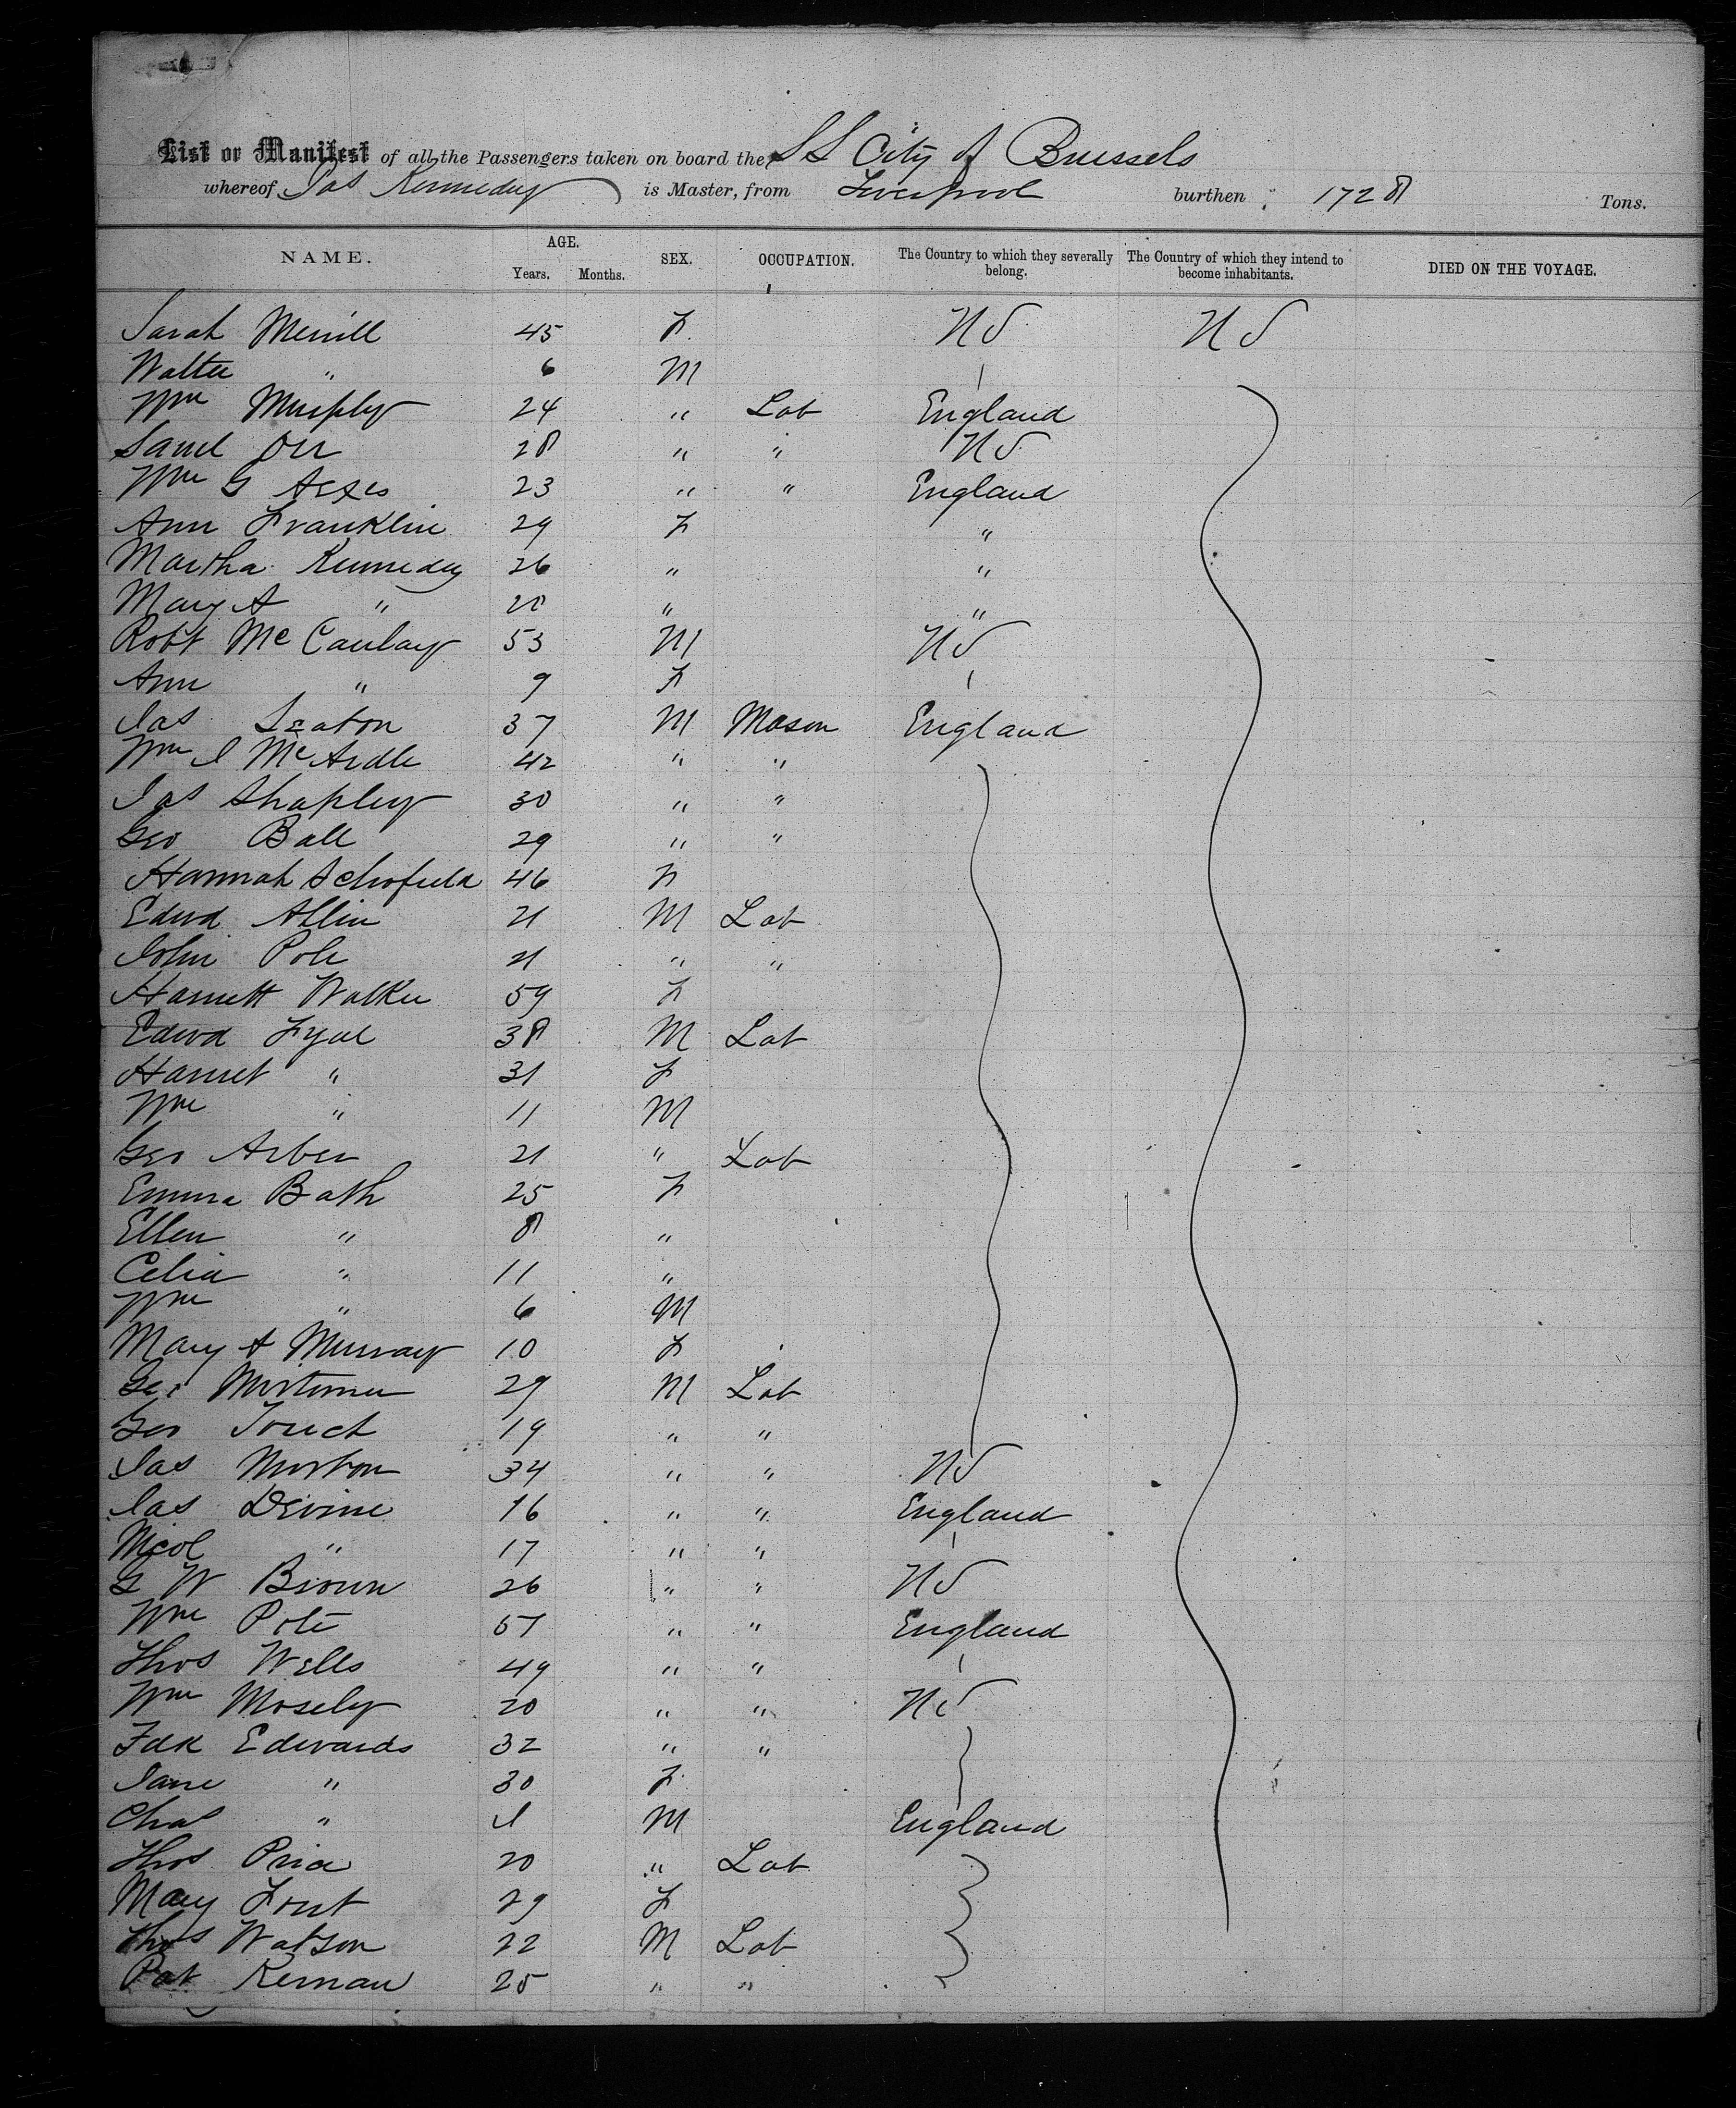 List or Manifest of all the Passengers taken on board the SS City of Brussels
whereof Jas Kennedy is Master, from Liverpool burthen 1728 Tons.
NAME. AGE. Years. Months. SEX. OCCUPATION. The Country to which they severally belong. The Country of which they intend to become inhabitants. DIED ON THE VOYAGE.
Sarah Merrill 45 F US US
Walter " 6 M
Wm Murphy 24 " Lab England
Saml Orr 28 " " US
Wm G 23 " " England
Ann Franklin 29 F "
Martha Kennedy 26 " "
Mary A " 20 " "
Robt McCaulay 53 M US
Ann " 9 F
Jas Seaton 37 M Mason England
Wm J McArdle 42 " "
Jas Shapley 30 " "
Geo Ball 29 " "
Hannah Schofield 46 F
Edwd Allin 21 M Lab
John Pole 21 " "
Harriett Walker 59 F
Edwd Lyal 38 M Lab
Harriet " 31 F
Wm " 11 M
Geo Arber 21 " Lab
Emma Bath 25 F
Ellen " 8 "
Celia " 11 "
Wm " 6 M
Mary A Murray 10 F
Geo Mortimer 29 M Lab
Geo Touch 19 " "
Jas Morton 34 " " US
Jas Devine 16 " " England
Micol " 17 " "
G W Brown 26 " " US
Wm Pole 57 " " England
Thos Wells 49 " "
Wm Mosely 20 " " US
Fdk Edwards 32 " "
Jane " 30 F
Chas " 1 M England
Thos Price 20 " Lab
Mary 29 F
Thos Watson 22 M Lab
Pat Kernan 25 " "